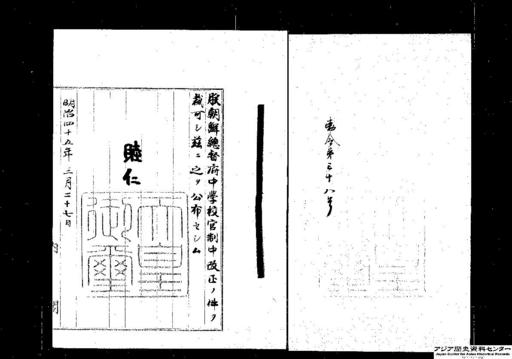 勅令第三十八号
朕朝鮮總督府中學校官制中改正ノ件ヲ
裁可シ茲ニ之ヲ公布セシム
睦仁
天皇
御璽
明治四十五年三月二十七日
内閣
アジア歴史資料センター
Japan Center for Asian Historical Records